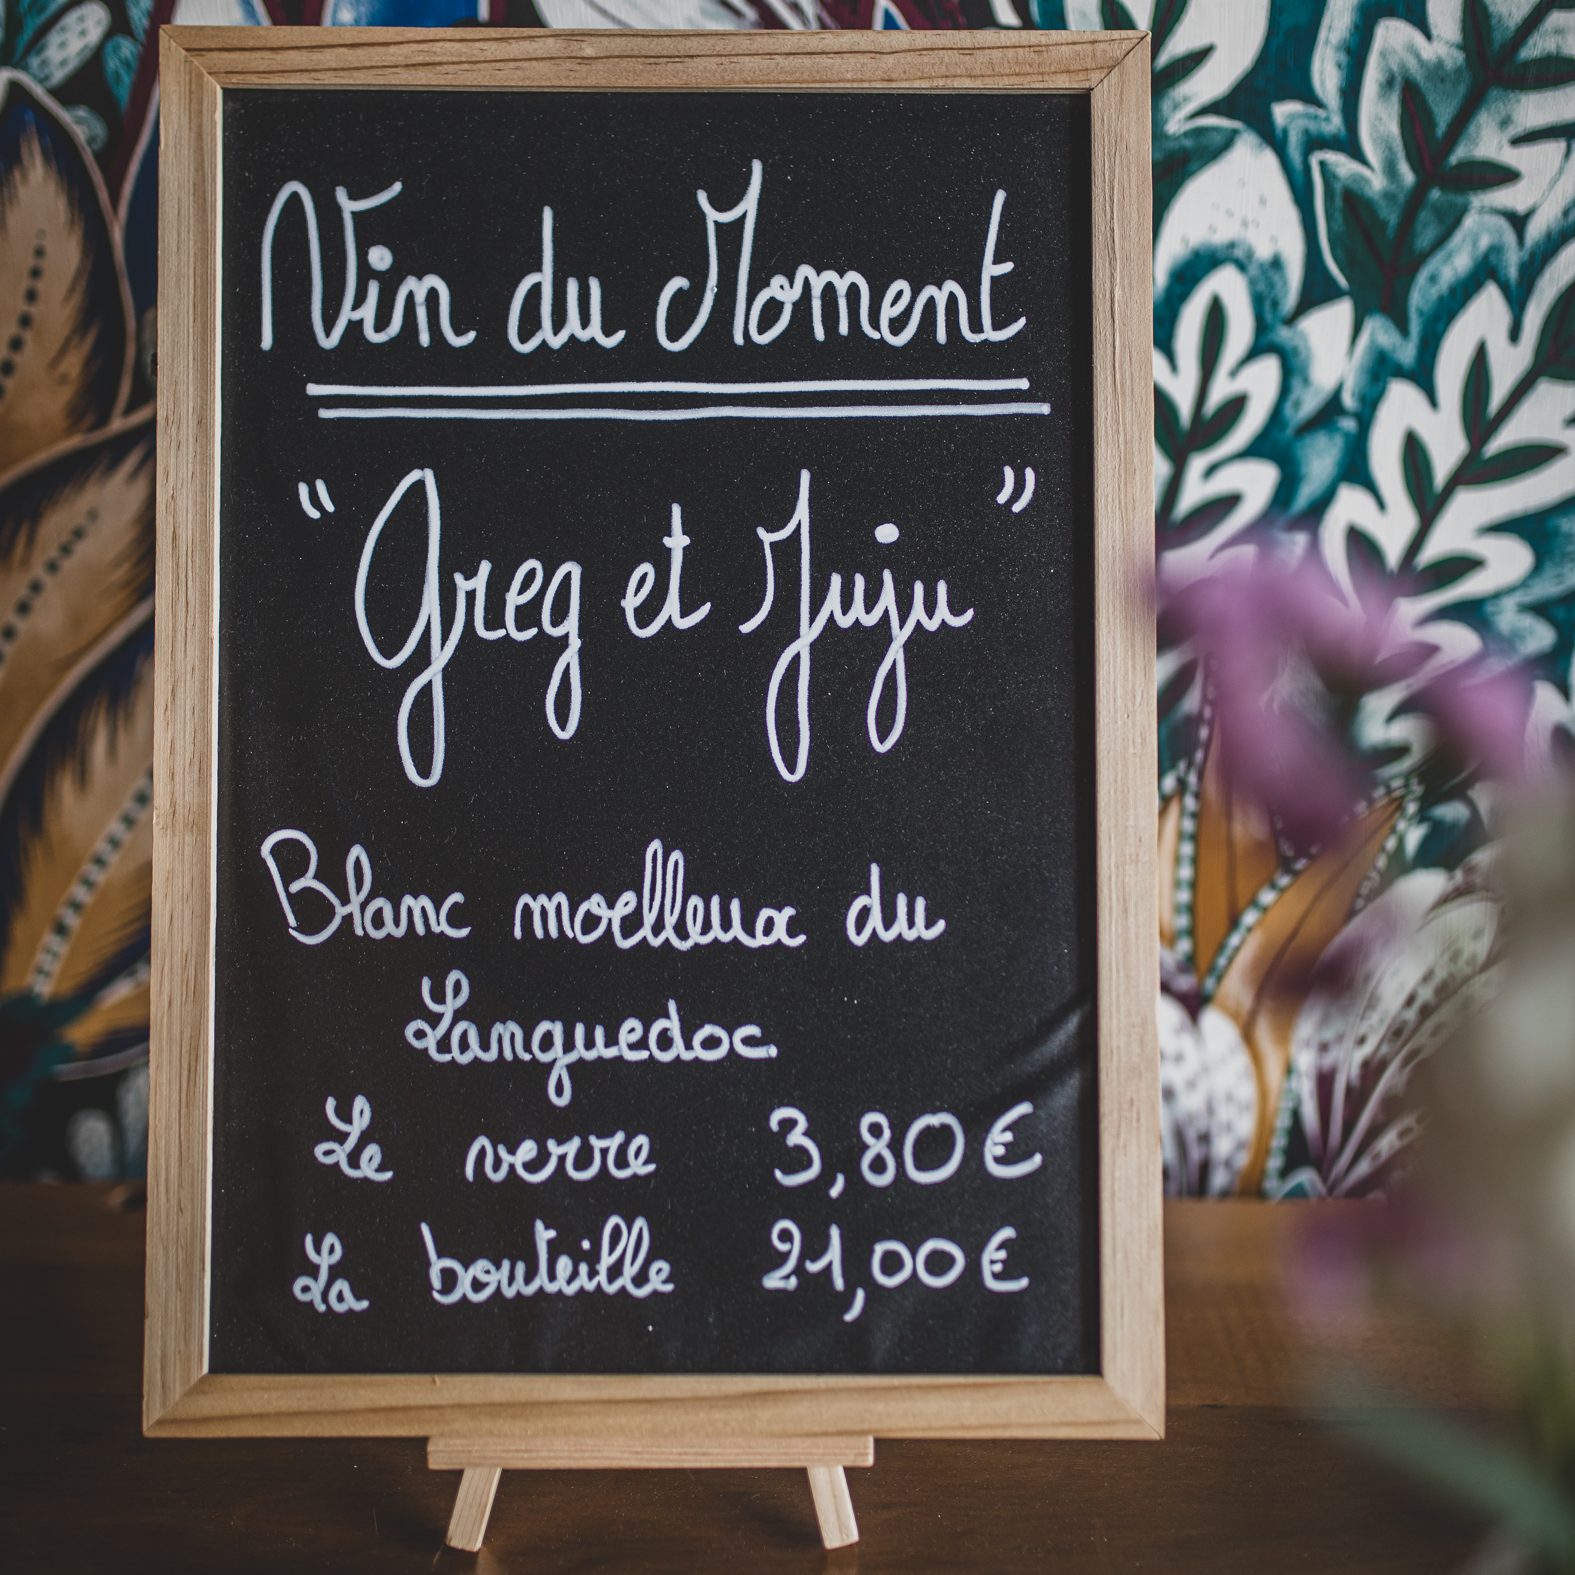 Vin du Moment
"Greg et Juju"
Blanc moelleux du
Languedoc
Le verre 3,80€
La bouteille 21,00€